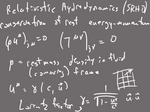 Relativistic Hydrodynamics (SRHD)
conservation of rest energy-momentum
(ρu^μ);μ = 0 (T^μν);ν = 0
ρ = rest mass density in fluid
(comoving) frame
u^μ = γ(c, ū)
Lorentz factor γ = 1/√(1-